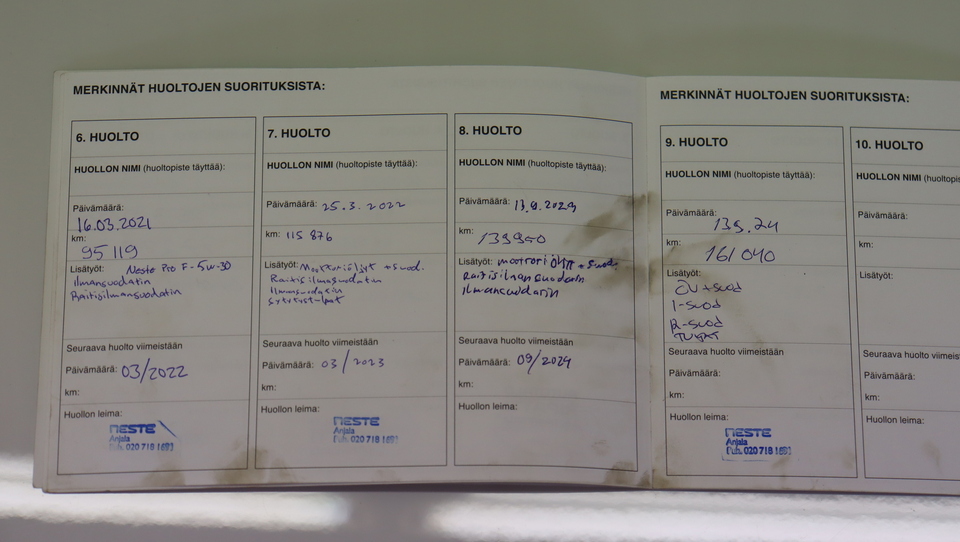 MERKINNÄT HUOLTOJEN SUORITUKSISTA:
6. HUOLTO
HUOLLON NIMI (huoltopiste täyttää):
Päivämäärä:
16.03.2021
km:
95 119
Lisätyöt: Neste Pro F-5W-30
ilmansuodatin
Raitisilmansuodatin
Seuraava huolto viimeistään
Päivämäärä: 03/2022
km:
Huollon leima:
NESTE
Anjala
Puh. 020 718 1591
7. HUOLTO
HUOLLON NIMI (huoltopiste täyttää):
Päivämäärä: 25.3.2022
km: 115 876
Lisätyöt: Moottoriöljyt + suod.
Raitisilmasuodatin
Ilmansuodatin
Seuraava huolto viimeistään
Päivämäärä: 03/2023
km:
Huollon leima:
NESTE
Anjala
Puh. 020 718 1591
8. HUOLTO
HUOLLON NIMI (huoltopiste täyttää):
Päivämäärä:
km:
Lisätyöt: moottoriöljyt + suod.
Raitisilmansuodatin
ilmansuodatin
Seuraava huolto viimeistään
Päivämäärä: 09/2024
km:
Huollon leima:
MERKINNÄT HUOLTOJEN SUORITUKSISTA:
9. HUOLTO
HUOLLON NIMI (huoltopiste täyttää):
Päivämäärä:
13.9.24
km:
161 040
Lisätyöt:
ÖV + suod
I-suod
R-suod
Seuraava huolto viimeistään
Päivämäärä:
km:
Huollon leima:
NESTE
Anjala
Puh. 020 718 1591
10. HUOLTO
HUOLLON NIMI (huoltopis
Päivämäärä:
km:
Lisätyöt:
Seuraava huolto viimeis
Päivämäärä:
km:
Huollon leima: